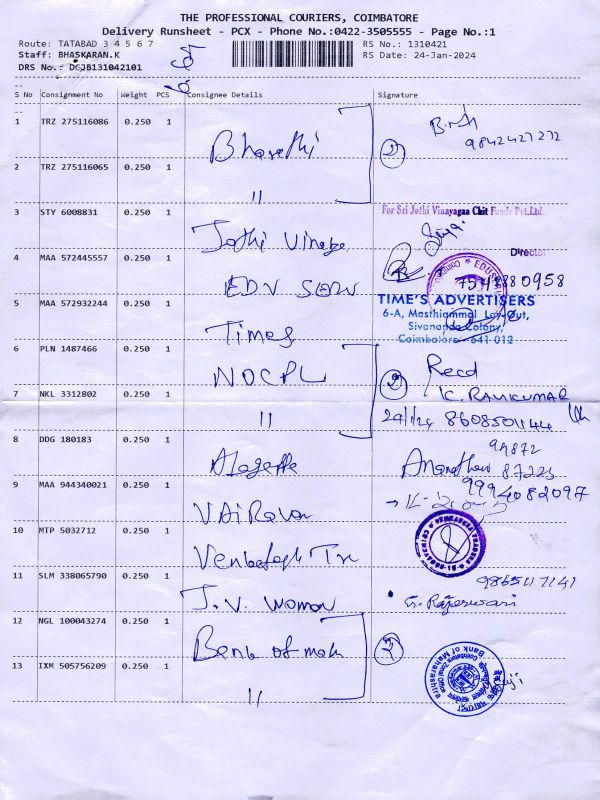 THE PROFESSIONAL COURIERS, COIMBATORE
Delivery Runsheet - PCX - Phone No.:0422-3505555 - Page No.:1
Route: TATABAD 3 4 5 6 7
RS No.: 1310421
Staff: BHASKARAN.K
RS Date: 24-Jan-2024
DRS No.: DGJB131042101
S No Consignment No Weight PCS Consignee Details Signature
1 TRZ 275116086 0.250 1
Bharathi
2
9842427272
2 TRZ 275116065 0.250 1
"
3 STY 6008831 0.250 1
Jothi Vinaya
For Sri Jothi Vinayagaa Chit Funds Pvt.Ltd.
Director
4 MAA 572445557 0.250 1
EDU SERV
7548880958
5 MAA 572932244 0.250 1
Times
TIME'S ADVERTISERS
6-A, Masthiammal Lay-Out,
Sivananda Colony,
Coimbatore - 641 012
6 PLN 1487466 0.250 1
NDCPL
2
Recd
K. RAVIKUMAR
7 NKL 3312802 0.250 1
"
24/1/24 8608501144
8 DDG 180183 0.250 1
Alagappa
99872
87223
9 MAA 944340021 0.250 1
VAIRavan
9994082097
10 MTP 5032712 0.250 1
Venkatesh Tra
11 SLM 338065790 0.250 1
J.V. Woman
9865117141
G. Rajeswari
12 NGL 100043274 0.250 1
Bank of mah
2
13 IXM 505756209 0.250 1
"
Bank of Maharashtra